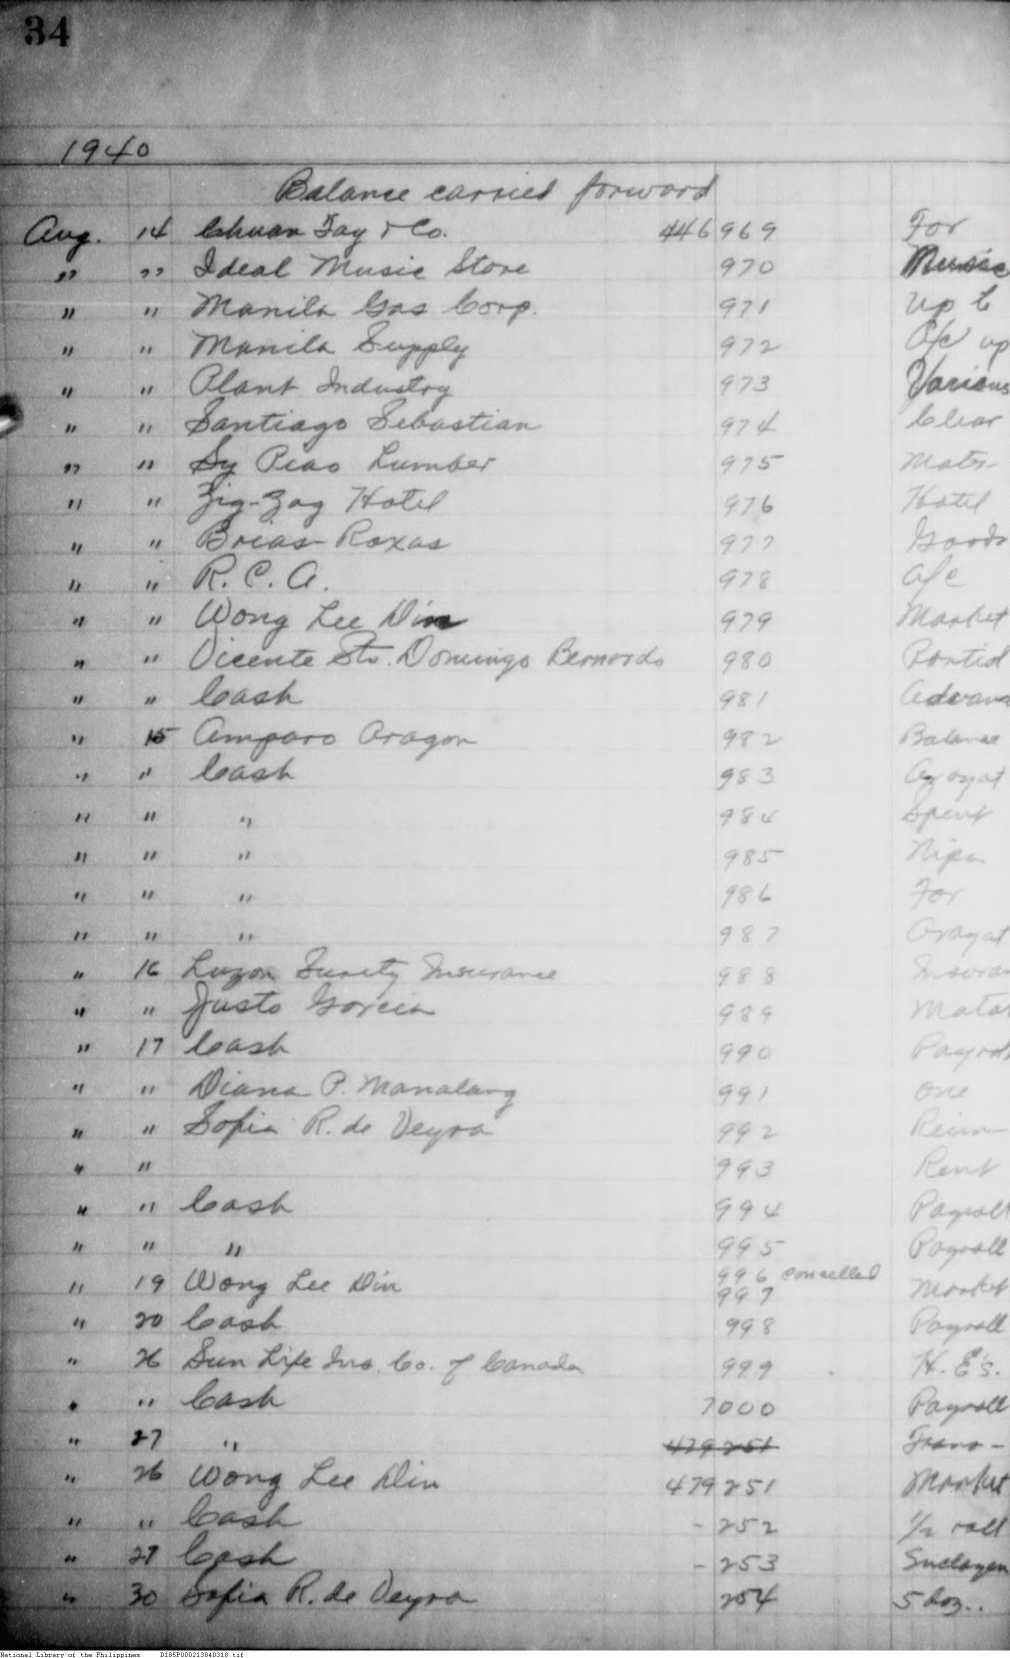 34
1940
Balance carried forward
Aug. 14 Chuan Tay & Co. 446 969 For
" " Ideal Music Store 970 Music
" " Manila Gas Corp. 971 up to
" " Manila Supply 972 A/c up
" " Plant Industry 973 Various
" " Santiago Sebastian 974 Clear
" " Sy Piao Lumber 975 Mater-
" " Zig-Zag Hotel 976 Hotel
" " Brias-Roxas 977 Goods
" " R.C.A. 978 a/c
" " Wong Lee Din 979 Market
" " Vicente Sto. Domingo Bernardo 980 Partial
" " Cash 981 Advanc
" 15 Amparo Aragon 982 Balance
" " Cash 983 Arayat
" " " 984 Spent
" " " 985 Nipa
" " " 986 For
" " " 987 Arayat
" 16 Luzon Surety Insurance 988 Insuran
" " Justo Garcia 989
" 17 Cash 990 Payroll
" " Diana P. Manalang 991 one
" " Sofia R. de Veyra 992 Reim-
" " 993 Rent
" " Cash 994 Payroll
" " " 995 Payroll
996 cancelled
" 19 Wong Lee Din 997 Market
" 20 Cash 998 Payroll
" 26 Sun Life Ins. Co. of Canada 999 H.E's.
" " Cash 7000 Payroll
" 27 " 479 251 Trans-
" 26 Wong Lee Din 479 251 Market
" " Cash - 252 1/2 roll
" 27 Cash - 253
" 30 Sofia R. de Veyra 254 5 doz..
National Library of the Philippines D185P000213040318.tif